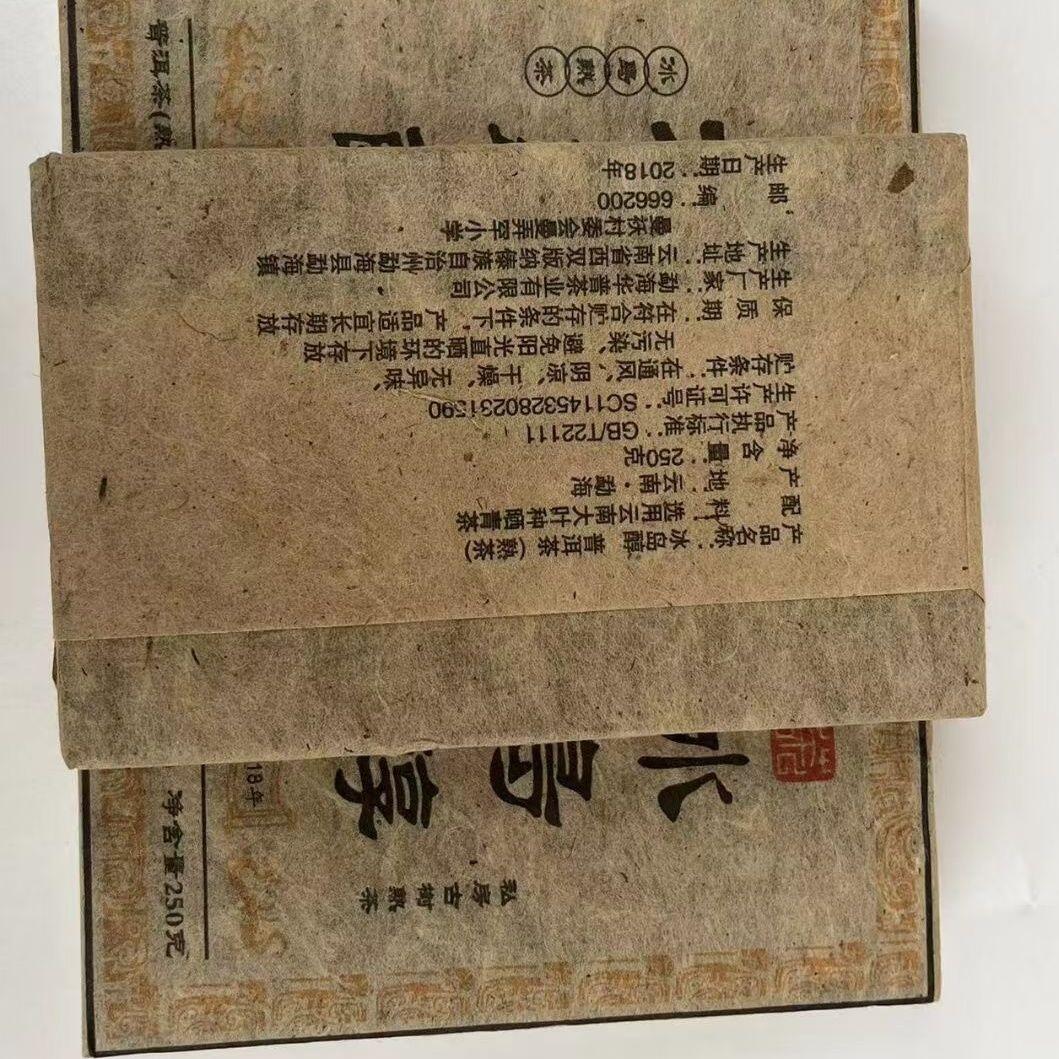 产品名称：冰岛醇 普洱茶（熟茶）
配料：选用云南大叶种晒青茶
产地：云南·勐海
净含量：250克
产品执行标准：GB/T22111
生产许可证号：SC11453280231590
贮存条件：在通风、阴凉、干燥、无异味、
无污染、避免阳光直晒的环境下存放
保质期：在符合贮存的条件下，产品适宜长期存放
生产厂家：勐海华普茶业有限公司
生产地址：云南省西双版纳傣族自治州勐海县勐海镇
曼袄村委会曼弄罕小学
邮编：666200
生产日期：2018年
冰岛熟茶
普洱茶(熟
冰岛醇
私房古树熟茶
18年
净含量250克